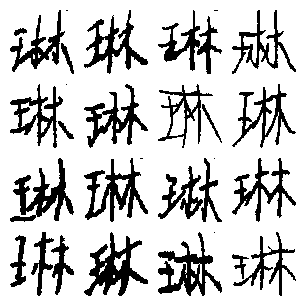 琳琳琳琳
琳琳琳琳
琳琳琳琳
琳琳琳琳